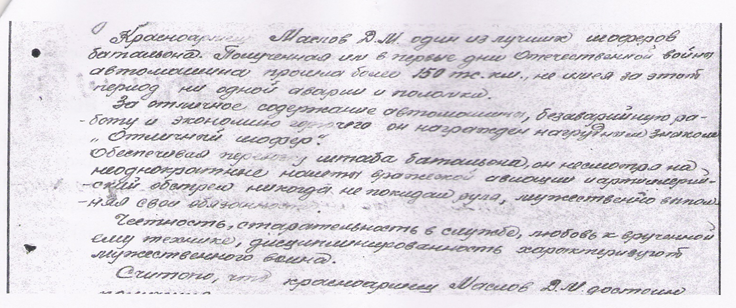 Красноармеец Маслов Д.М. один из лучших шоферов
батальона. Полученная им в первые дни Отечественной войны
автомашина прошла более 150 тс. км., не имея за этот
период ни одной аварии и поломки.
За отличное содержание автомашины, безаварийную ра-
-боту и экономию горючего он награжден нагрудным знаком
„Отличный шофер".
Обеспечивая перевозку штаба батальона, он несмотря на
неоднократные налеты вражеской авиации и артиллерий-
-ский обстрел никогда не покидал руля, мужественно выпол-
няя свои обязанности.
Честность, старательность в службе, любовь к врученной
ему технике, дисциплинированность характеризуют
мужественного воина.
Считаю, что красноармеец Маслов Д.М. достоин